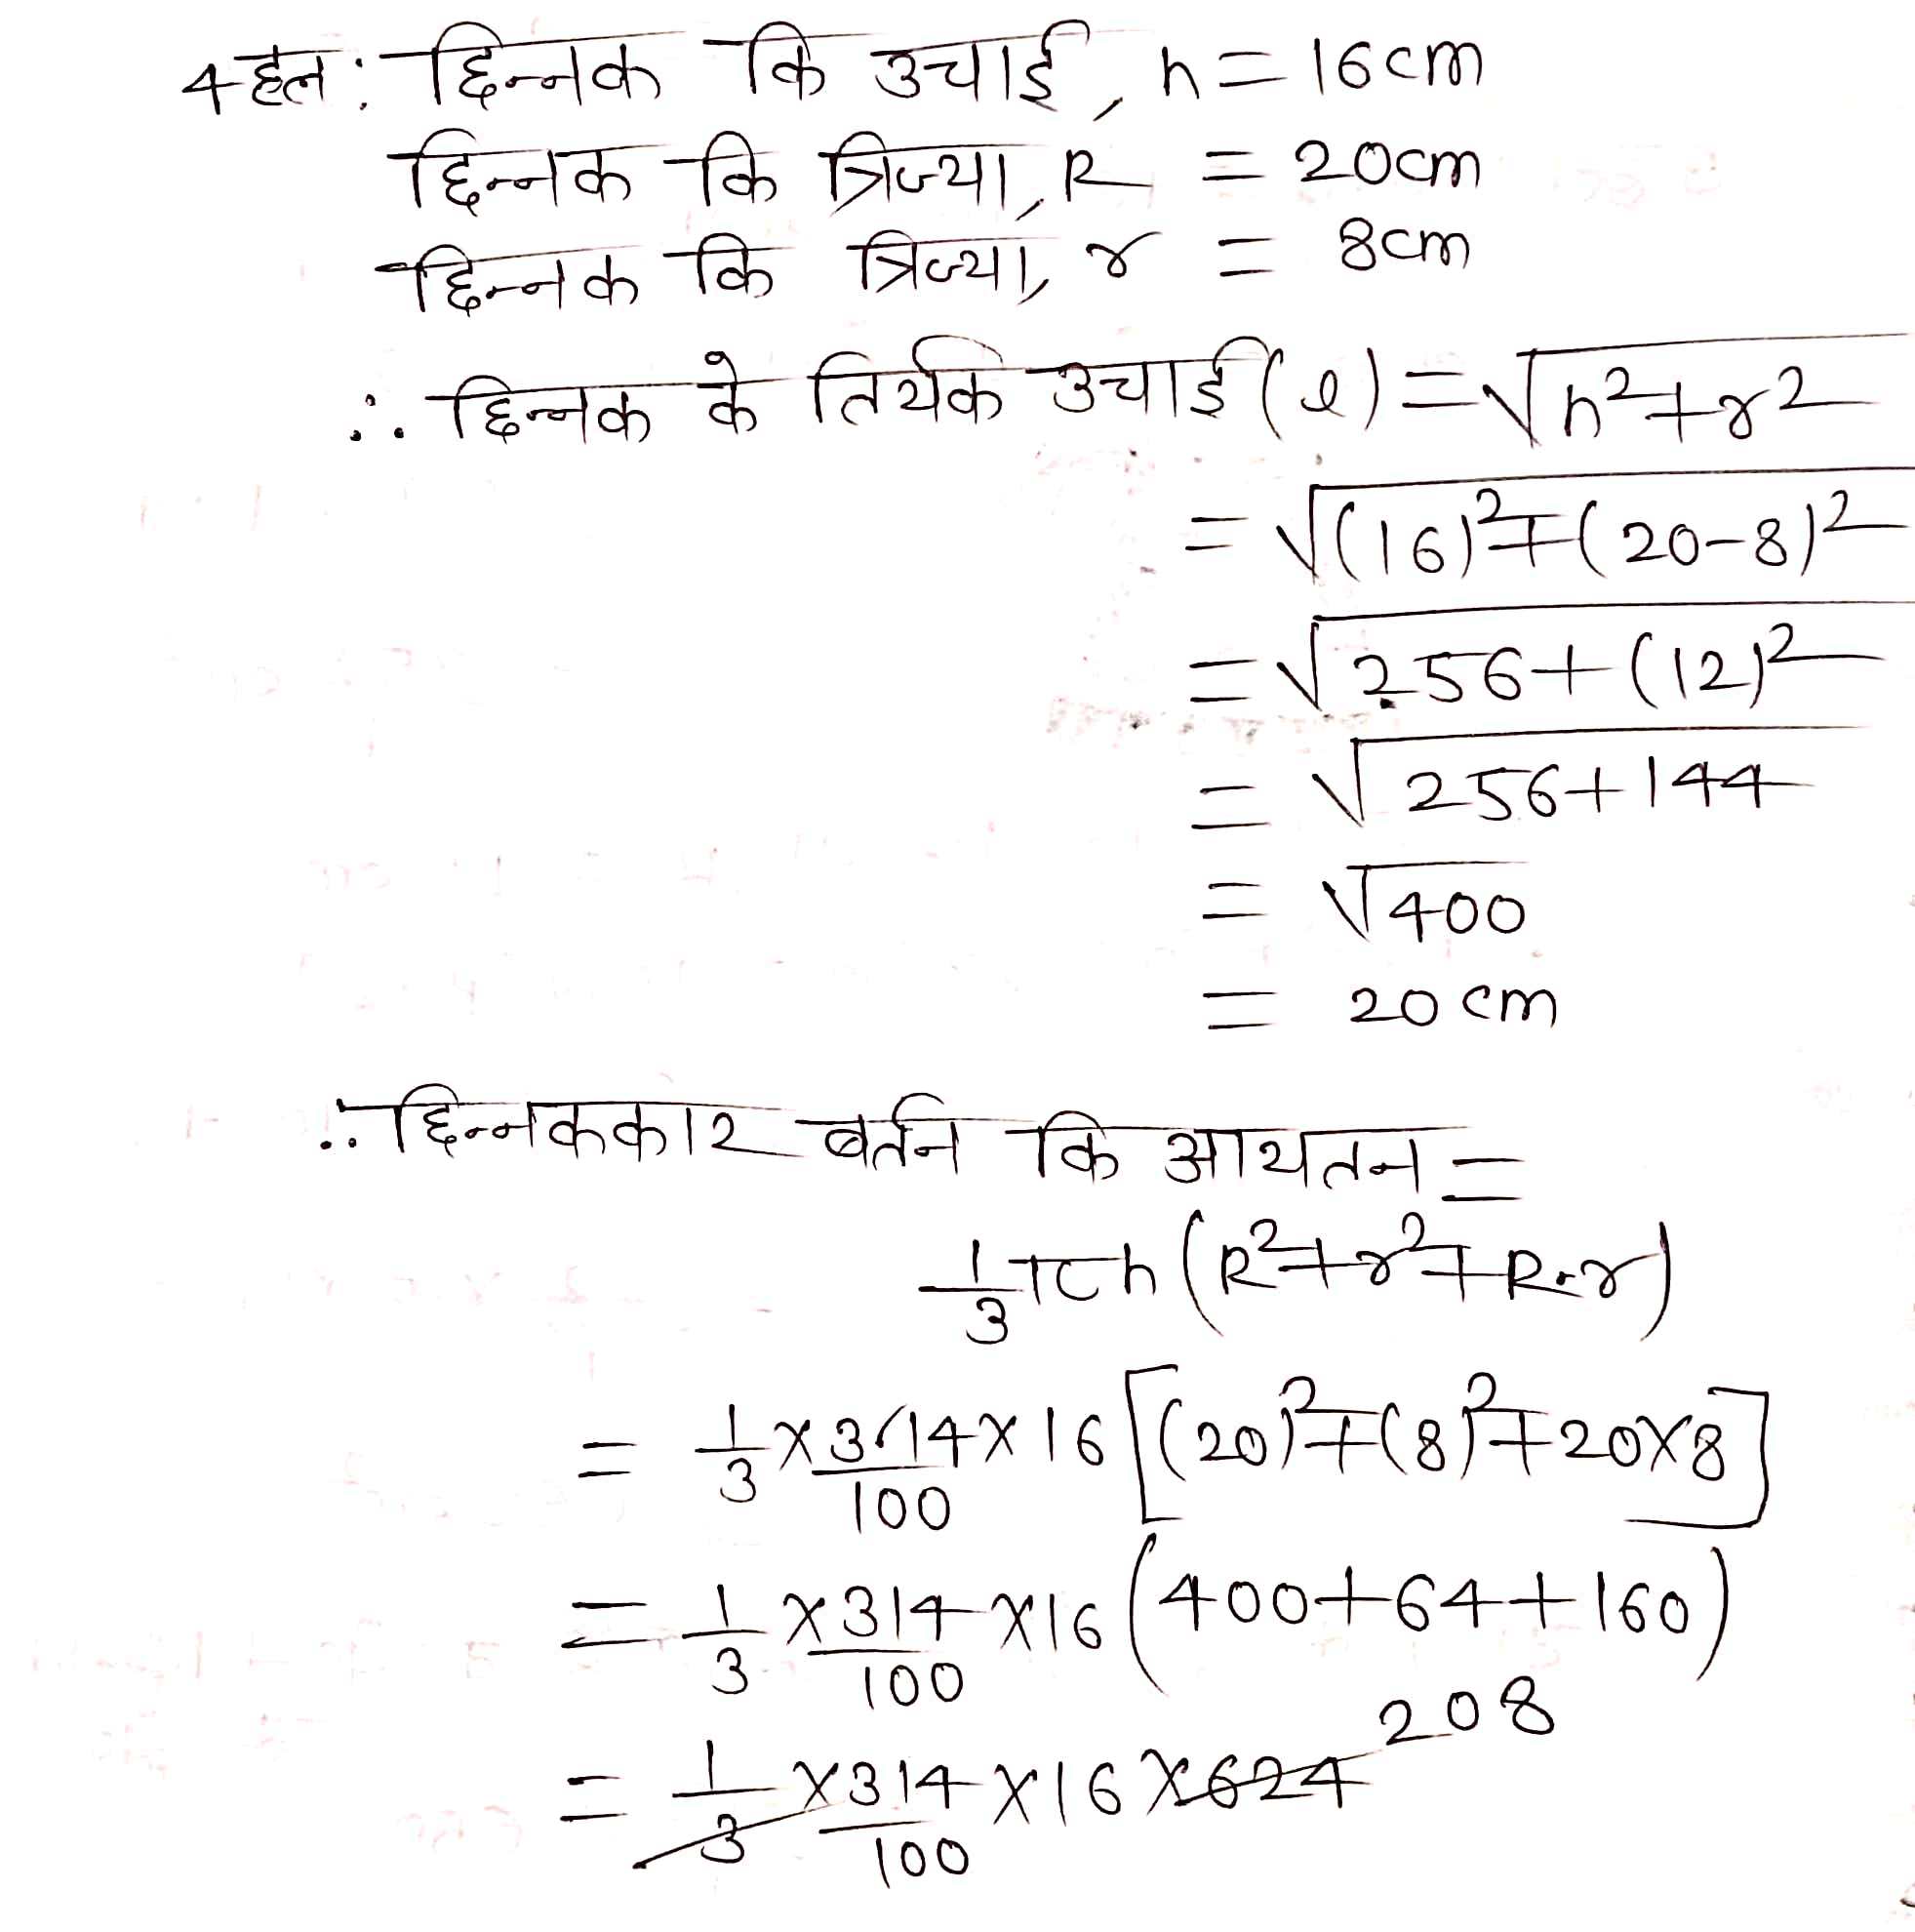 4 हल: छिन्नक कि उचाई, h = 16cm
छिन्नक कि त्रिज्या, R = 20cm
छिन्नक कि त्रिज्या, r = 8cm
∴ छिन्नक के तिर्यक उचाई (l) = √h²+r²
= √(16)²+(20-8)²
= √256+(12)²
= √256+144
= √400
= 20 cm
∴ छिन्नककार बर्तन कि आयतन =
1/3 πh (R²+r²+R.r)
= 1/3 × 314/100 × 16 [(20)²+(8)²+20×8]
= 1/3 × 314/100 × 16 (400+64+160)
= 1/3 × 314/100 × 16 × 624 208